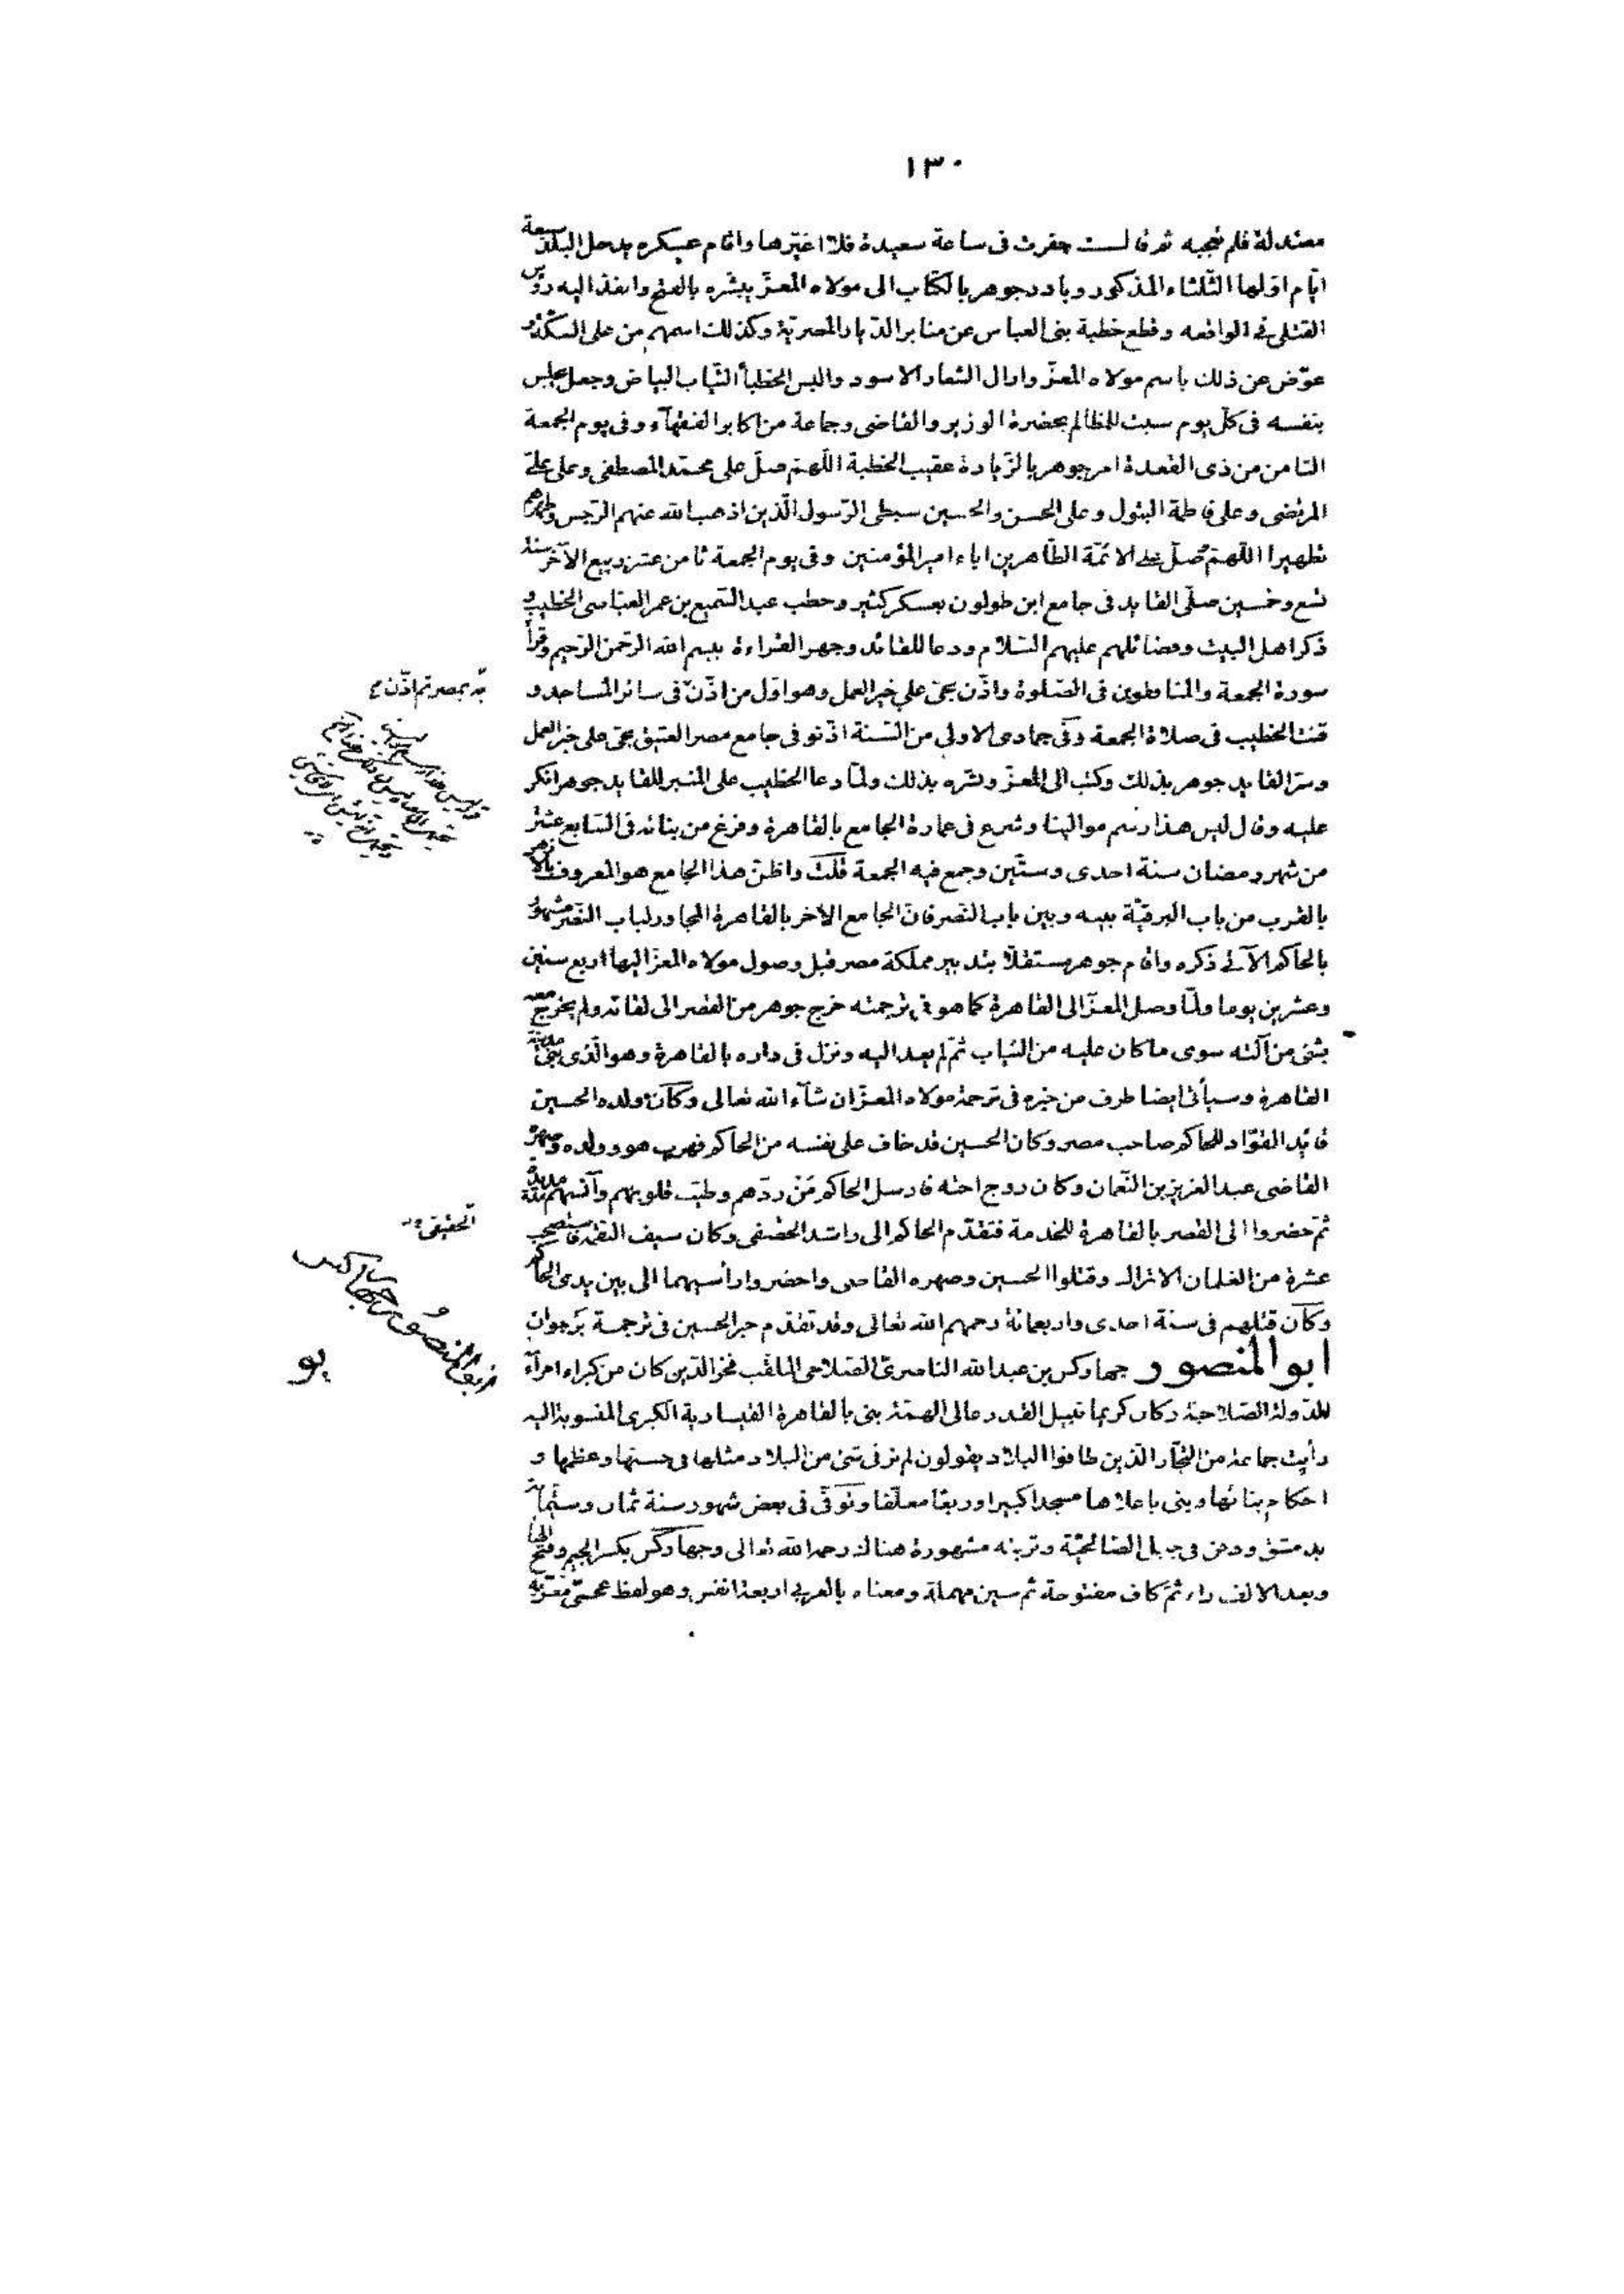 ١٣٠
معتدلة فلم تعجبه ثم قالت حفرت فى ساعة سعيدة فلا اغيّرها واقام عسكره يدخل البلد سبعة
ايّام اوّلها الثّلثاء المذكور وبادر جوهر بالكتاب الى مولاه المعزّ يبشّره بالفتح وانفذ اليه رؤس
القتلى فى الواقعه وقطع خطبة بنى العباس عن منابر الدّيار المصريّة وكذلك اسمهم من على السّكّة و
عوّض عن ذلك باسم مولاه المعزّ وازال الشعار الاسود والبس الخطبأ الثّياب البياض وجعل يجلس
بنفسه فى كلّ يوم سبت للمظالم بحضرة الوزير والقاضى وجماعة من اكابر الفقهآء وفى يوم الجمعة
الثامن من ذى القعدة امر جوهر بالزّيادة عقيب الخطبة اللّهمّ صلّ على محمّد المصطفى وعلى علىّ
المرتضى وعلى فاطمة البتول وعلى الحسن والحسين سبطى الرّسول الّذين اذهب الله عنهم الرّجس وطهرهم
تطهيرا اللّهمّ صلّ على الائمّة الطّاهرين اباء امير المؤمنين وفى يوم الجمعة ثامن عشر ربيع الآخر سنة
تسع وخمسين صلّى القايد فى جامع ابن طولون بعسكر كثير وخطب عبد السّميع بن عمر العبّاسى الخطيب و
ذكر اهل البيت وفضائلهم عليهم السّلام ودعا للقائد وجهر القراءة ببسم الله الرّحمن الرّحيم وقرأ
سورة الجمعة والمنافقون فى الصّلوة واذّن بحىّ على خير العمل وهو اوّل من اذّن فى سائر المساجد و
يّه بمصر ثم اذّن
قنت الخطيب فى صلاة الجمعة وفى جمادى الاولى من السّنة اذّنو فى جامع مصر العتيق بحىّ على خير العمل
وسرّ القايد جوهر بذلك وكتب الى المعزّ وبشّره بذلك ولمّا دعا الخطيب على المنبر للقايد جوهر انكر
عليه وقال ليس هذا رسم موالينا وشرع فى عمارة الجامع بالقاهرة وفرغ من بنائه فى السّابع عشر
من شهر رمضان سنة احدى وستّين وجمع فيه الجمعة قلت واظنّ هذا الجامع هو المعروف بالازهر
بالقرب من باب البرقيّة بينه وبين باب النّصر فانّ الجامع الآخر بالقاهرة المجاور لباب النّصر مشهور
بالحاكم الآتى ذكره واقام جوهر مستقلّا بتدبير مملكة مصر قبل وصول مولاه المعزّ اليها اربع سنين
وعشرين يوما ولمّا وصل المعزّ الى القاهرة كما هو فى ترجمته خرج جوهر من القصر الى لقائه ولم يخرج معه
بشئ من آلته سوى ما كان عليه من الثياب ثمّ لم يعد اليه ونزل فى داره بالقاهرة وهو الّذى بنى مدينة
القاهرة وسيأتى ايضا طرف من خبره فى ترجمة مولاه المعزّ ان شآء الله تعالى وكان ولده الحسين
قايد القوّاد للحاكم صاحب مصر وكان الحسين قد خاف على نفسه من الحاكم فهرب هو وولده وصهره
القاضى عبد العزيز بن النّعمان وكان زوج اخته فارسل الحاكم مَنْ ردّهم وطيّب قلوبهم وآنسهم مديدة
ثمّ حضروا الى القصر بالقاهرة للخدمة فتقدّم الحاكم الى راشد الحقيقى وكان سيف النقمة فاستصحب
الحقيقى
عشرة من الغلمان الاتراك وقتلوا الحسين وصهره القاضى واحضروا رأسيهما الى بين يدى الحاكم
وكان قتلهم فى سنة احدى واربعمائة رحمهم الله تعالى وقد تقدّم خبر الحسين فى ترجمة برجوان
ابو المنصور جهاركس بن عبد الله الناصرىّ الصّلاحى الملقّب فخر الدّين كان من كبراء امرآء
للدّولة الصّلاحيّة وكان كريما نبيل القدر عالى الهمّة بنى بالقاهرة القيسارية الكبرى المنسوبة اليه
رأيت جماعة من التّجّار الّذين طافوا البلاد يقولون لم نر فى شئ من البلاد مثلها فى حسنها وعظمها و
احكام بنائها وبنى باعلاها مسجدا كبيرا وربعا معلّقا وتوفّى فى بعض شهور سنة ثمان وستّمائة
بدمشق ودفن فى جبل الصّالحيّة وتربته مشهورة هناك رحمه الله تعالى وجهاركس بكسر الجيم وفتح الهآ
وبعد الالف راء ثمّ كاف مفتوحة ثم سين مهملة ومعناه بالعربى اربعة انفس وهو لفظ عجمىّ معرّبه